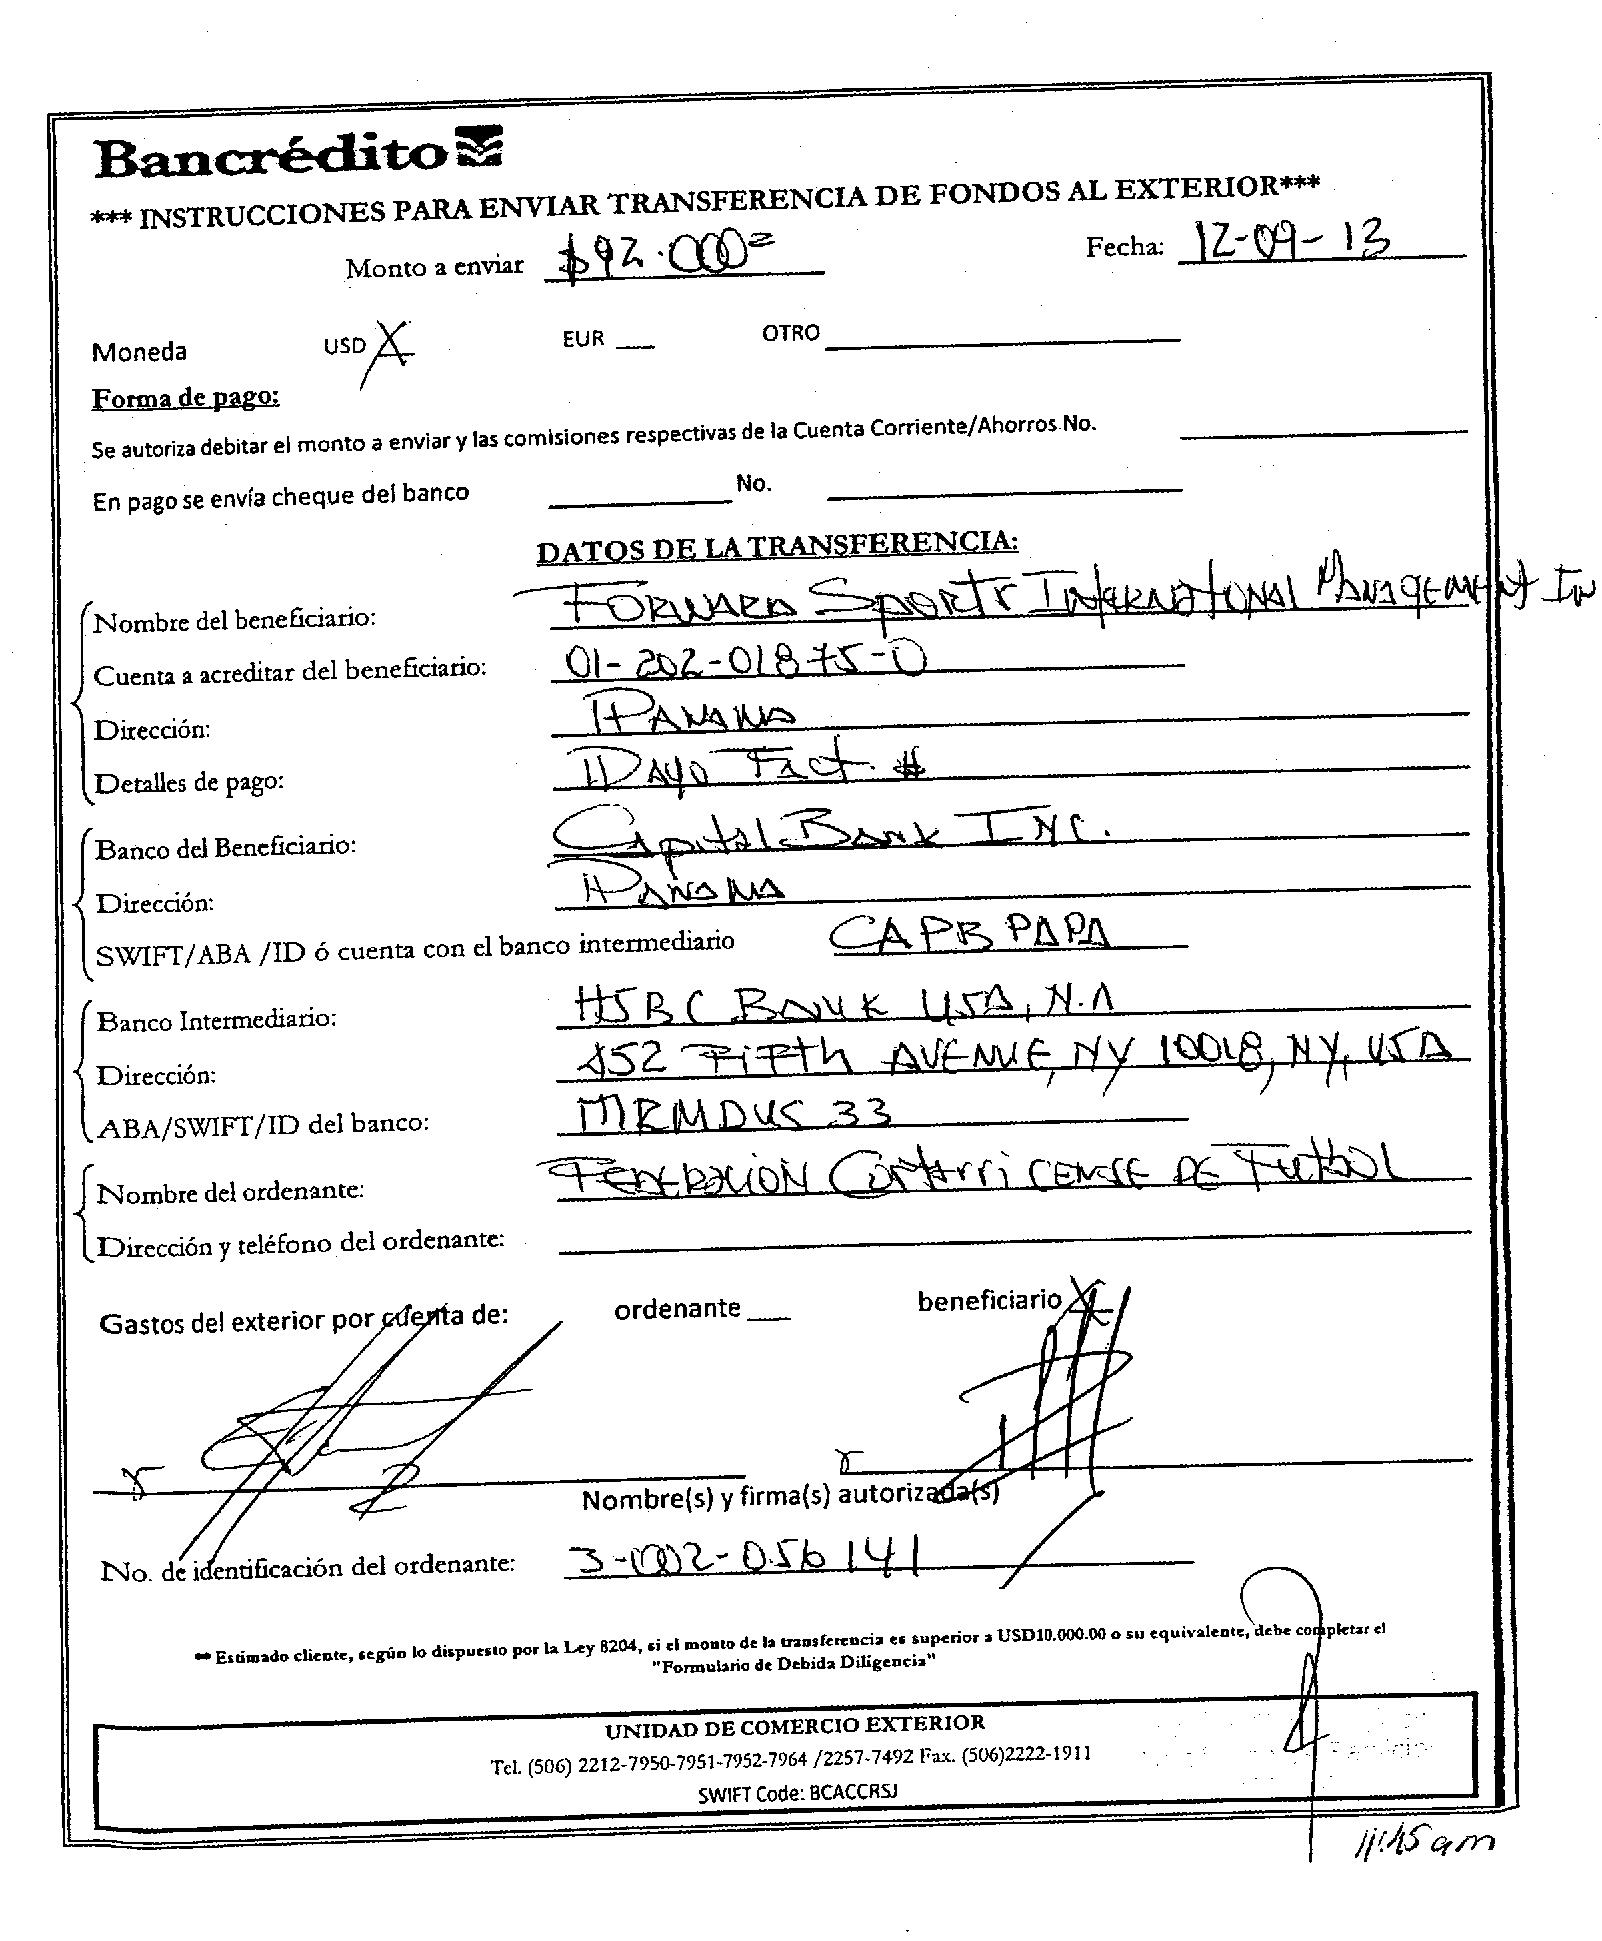 Bancrédito
*** INSTRUCCIONES PARA ENVIAR TRANSFERENCIA DE FONDOS AL EXTERIOR***
Monto a enviar $92.000= Fecha: 12-09-13
Moneda USD X EUR ___ OTRO ___
Forma de pago:
Se autoriza debitar el monto a enviar y las comisiones respectivas de la Cuenta Corriente/Ahorros No.
En pago se envía cheque del banco ___ No. ___
DATOS DE LA TRANSFERENCIA:
Nombre del beneficiario: Forward Sports International Management In
Cuenta a acreditar del beneficiario: 01-202-01875-0
Dirección: Panama
Detalles de pago: Pago Fact. #
Banco del Beneficiario: Capital Bank Inc.
Dirección: Panama
SWIFT/ABA /ID ó cuenta con el banco intermediario CAPBPAPA
Banco Intermediario: HSBC Bank USA, N.A
Dirección: 452 Fifth AVENUE, NY 10018, NY, USA
ABA/SWIFT/ID del banco: MRMDUS 33
Nombre del ordenante: Federacion Costarricense de Futbol
Dirección y teléfono del ordenante:
Gastos del exterior por cuenta de: ordenante ___ beneficiario X
Nombre(s) y firma(s) autorizada(s)
No. de identificación del ordenante: 3-002-056141
** Estimado cliente, según lo dispuesto por la Ley 8204, si el monto de la transferencia es superior a USD10.000.00 o su equivalente, debe completar el
"Formulario de Debida Diligencia"
UNIDAD DE COMERCIO EXTERIOR
Tel. (506) 2212-7950-7951-7952-7964 /2257-7492 Fax. (506)2222-1911
SWIFT Code: BCACCRSJ
11:45 am